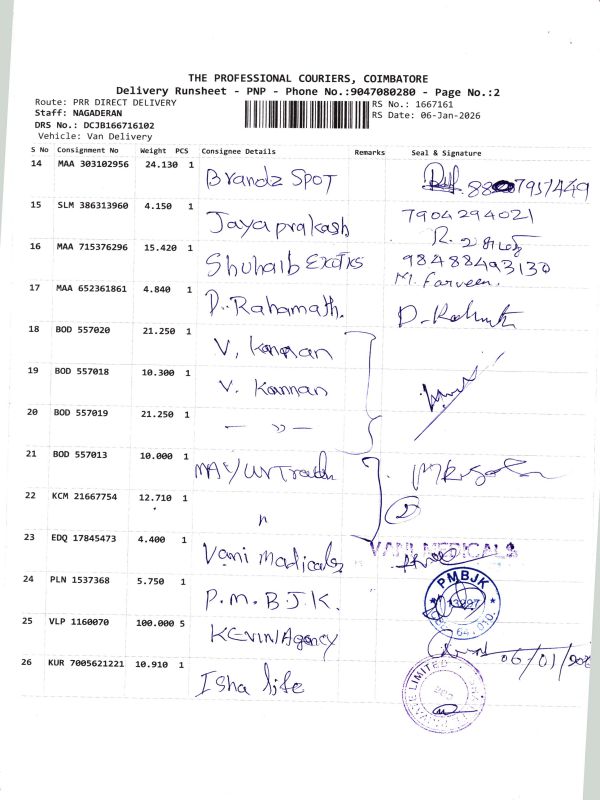 THE PROFESSIONAL COURIERS, COIMBATORE
Delivery Runsheet - PNP - Phone No.:9047080280 - Page No.:2
Route: PRR DIRECT DELIVERY RS No.: 1667161
Staff: NAGADERAN RS Date: 06-Jan-2026
DRS No.: DCJB166716102
Vehicle: Van Delivery
S No Consignment No Weight PCS Consignee Details Remarks Seal & Signature
14 MAA 303102956 24.130 1 Brandz SPOT
15 SLM 386313960 4.150 1 Jayaprakash 7904294021
16 MAA 715376296 15.420 1 Shuhaib Exotics 98488493130
M. Farveen.
17 MAA 652361861 4.840 1 D. Rahamath.
18 BOD 557020 21.250 1 V. Kannan
19 BOD 557018 10.300 1 V. Kannan
20 BOD 557019 21.250 1 — 〃 —
21 BOD 557013 10.000 1 Traders
22 KCM 21667754 12.710 1 〃 2
23 EDQ 17845473 4.400 1 Vani Madicales VANI MEDICALS
24 PLN 1537368 5.750 1 P.M.B.J.K. PMBJK
25 VLP 1160070 100.000 5 KEVIN Agency
26 KUR 7005621221 10.910 1 Isha life LIMITED